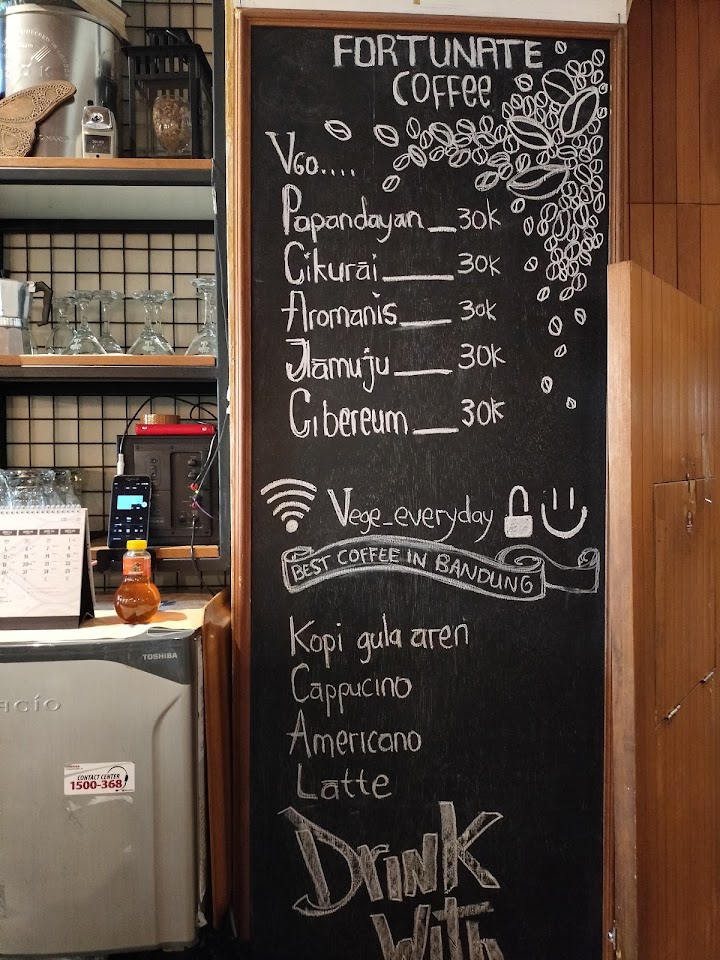 FORTUNATE
COFFEE
V60....
Papandayan 30K
Cikurai 30K
Aromanis 30K
Jamuju 30K
Cibereum 30K
Vege_everyday
BEST COFFEE IN BANDUNG
Kopi gula aren
Cappucino
Americano
Latte
DRINK
With
TOSHIBA
CONTACT CENTER
1500-368